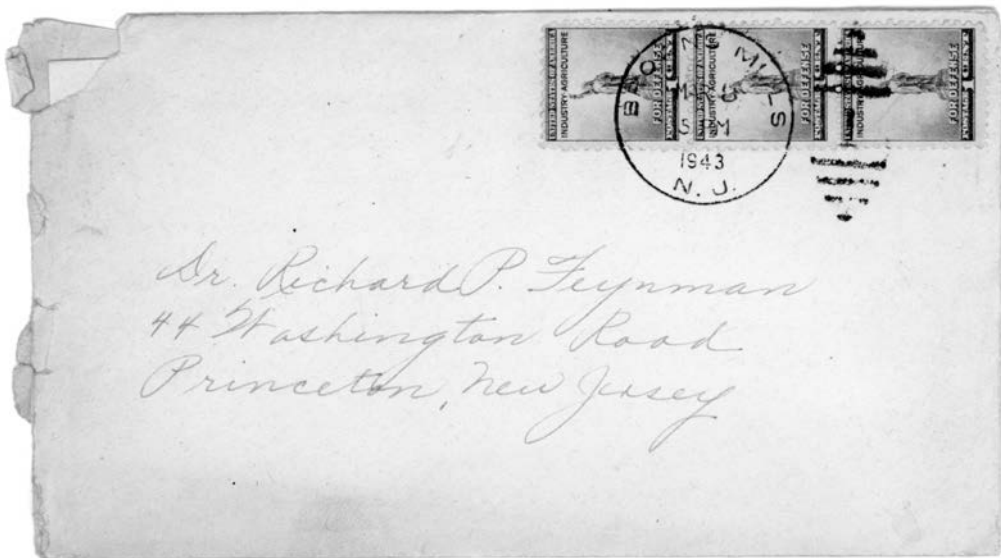 UNITED STATES OF AMERICA
INDUSTRY·AGRICULTURE
FOR DEFENSE
UNITED STATES OF AMERICA
INDUSTRY·AGRICULTURE
FOR DEFENSE
INDUSTRY·AGRICULTURE
FOR DEFENSE
MILLS
1943
N. J.
Dr. Richard P. Feynman
44 Washington Road
Princeton, New Jersey